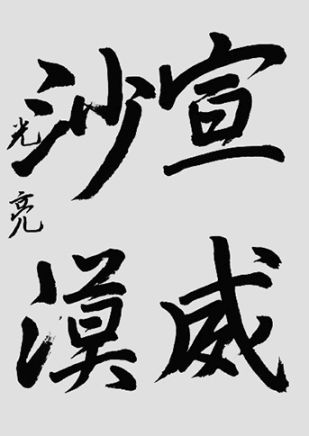 宣威
沙漠
光亮